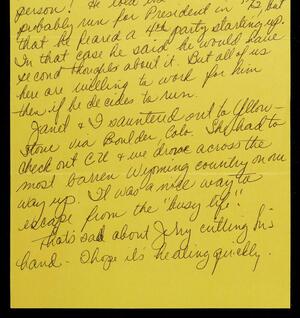 person! He told us
probably run for President in '72, but
that he feared a 4th party starting up.
In that case he said he would have
second thoughts about it. But all of us
here are willing to work for him
then if he decides to run.
Janet & I sauntered out to Yellow-
stone via Boulder, Colo. She had to
check out C.U. & we drove across the
most barren Wyoming country on our
way up. It was a nice way to
escape from the "busy life".
That's sad about Jerry cutting his
hand - I hope it's healing quickly.